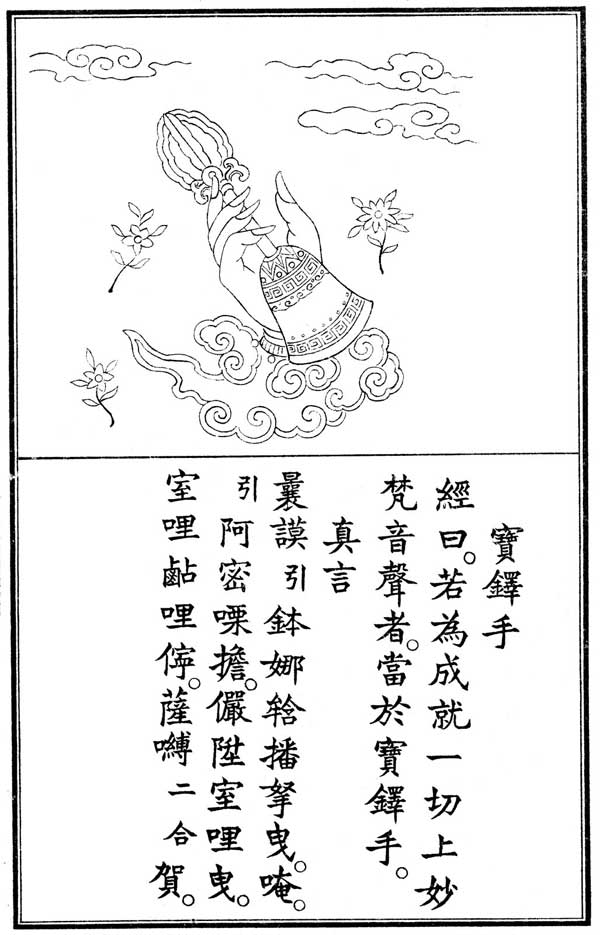 寶鐸手
經曰。若為成就一切上妙
梵音聲者。當於寶鐸手。
真言
曩謨引鉢娜播拏曳。唵。
引阿密㗚擔。儼陞室哩曳。
室哩哩。薩嚩二合賀。